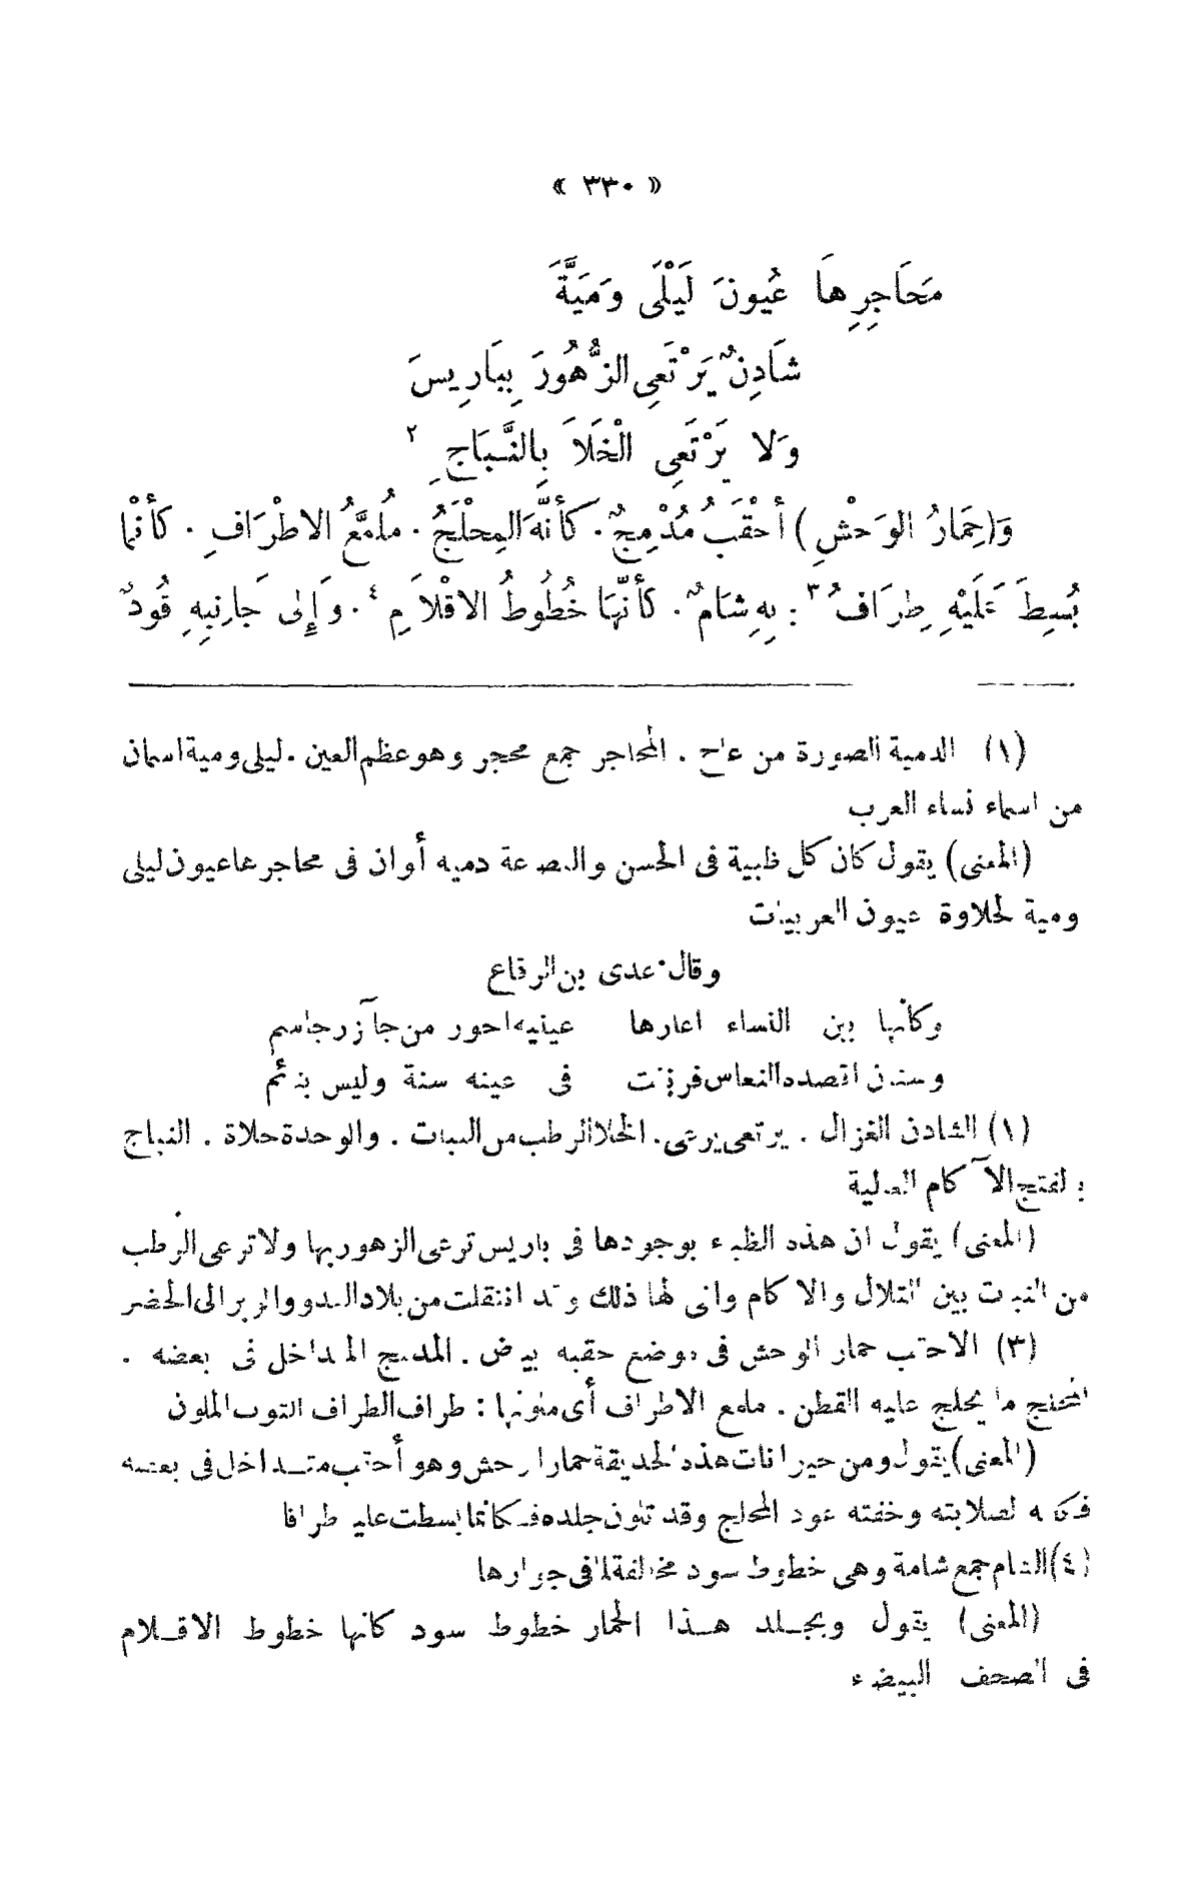 « ٣٣٠ »
مَحَاجِرِهَا عُيُونَ لَيْلَى وَمَيَّةَ
شَادِنٌ يَرْتَعِى الزُّهُورَ بِبَارِيسَ
وَلا يَرْتَعِى الْخَلاَ بِالنَّبَاجِ ٢
وَ(حِمَارُ الوَحْشِ) أحْقَبُ مُدْمِجٌ. كَأنَّهَ المِحْلَجُ. مُلمَّعُ الاطْرَافِ. كَأنَّما
بُسِطَ عَلَيْهِ طِرَافُ ٣: بِهِ شَامٌ. كَأنَّهَا خُطُوطُ الاقْلاَمِ ٤. وَإِلى جَانِبِهِ قُودٌ
(١) الدمية الصورة من عاج . المحاجر جمع محجر وهو عظم العين . ليلى ومية اسمان
من اسماء نساء العرب
(المعنى) يقول كان كل ظبية فى الحسن والبصاعة دميه أوان فى محاجرها عيون ليلى
ومية لحلاوة عيون العربيات
وقال عدى بن الرقاع
وكأنها بين النساء اعارها عينيه احور من جآزر جاسم
وسنان اقصده النعاس فرنقت فى عينه سنة وليس بنائم
(١) الشادن الغزال . يرتعى يرعى. الخلا الرطب من النبات . والوحدة حلاة . النباج
بالفتح الآ كام العالية
(المعنى) يقول ان هذه الظباء بوجودها فى باريس ترعى الزهور بها ولا ترعى الرطب
من النبات بين التلال والا كام وانى لها ذلك وقد انتقلت من بلاد البدو والوبر الى الحضر
(٣) الاحقب حمار الوحش فى موضع حقبه بياض . المدمج المتداخل فى بعضه .
المحلج ما يحلج عليه القطن . ملمع الاطراف أى متلونها : طراف الطراف الثوب الملون
(المعنى) يقول ومن حيوانات هذه الحديقة حمار الوحش وهو أحقب متداخل فى بعضه
فكأنه لصلابته وخفته عود المحلج وقد تلون جلده فكانما بسطت عليه طرافا
(٤) الشام جمع شامة وهى خطوط سود مخالفة لما فى جوارها
(المعنى) يقول وبجلد هذا الحمار خطوط سود كانها خطوط الاقلام
فى الصحف البيضاء